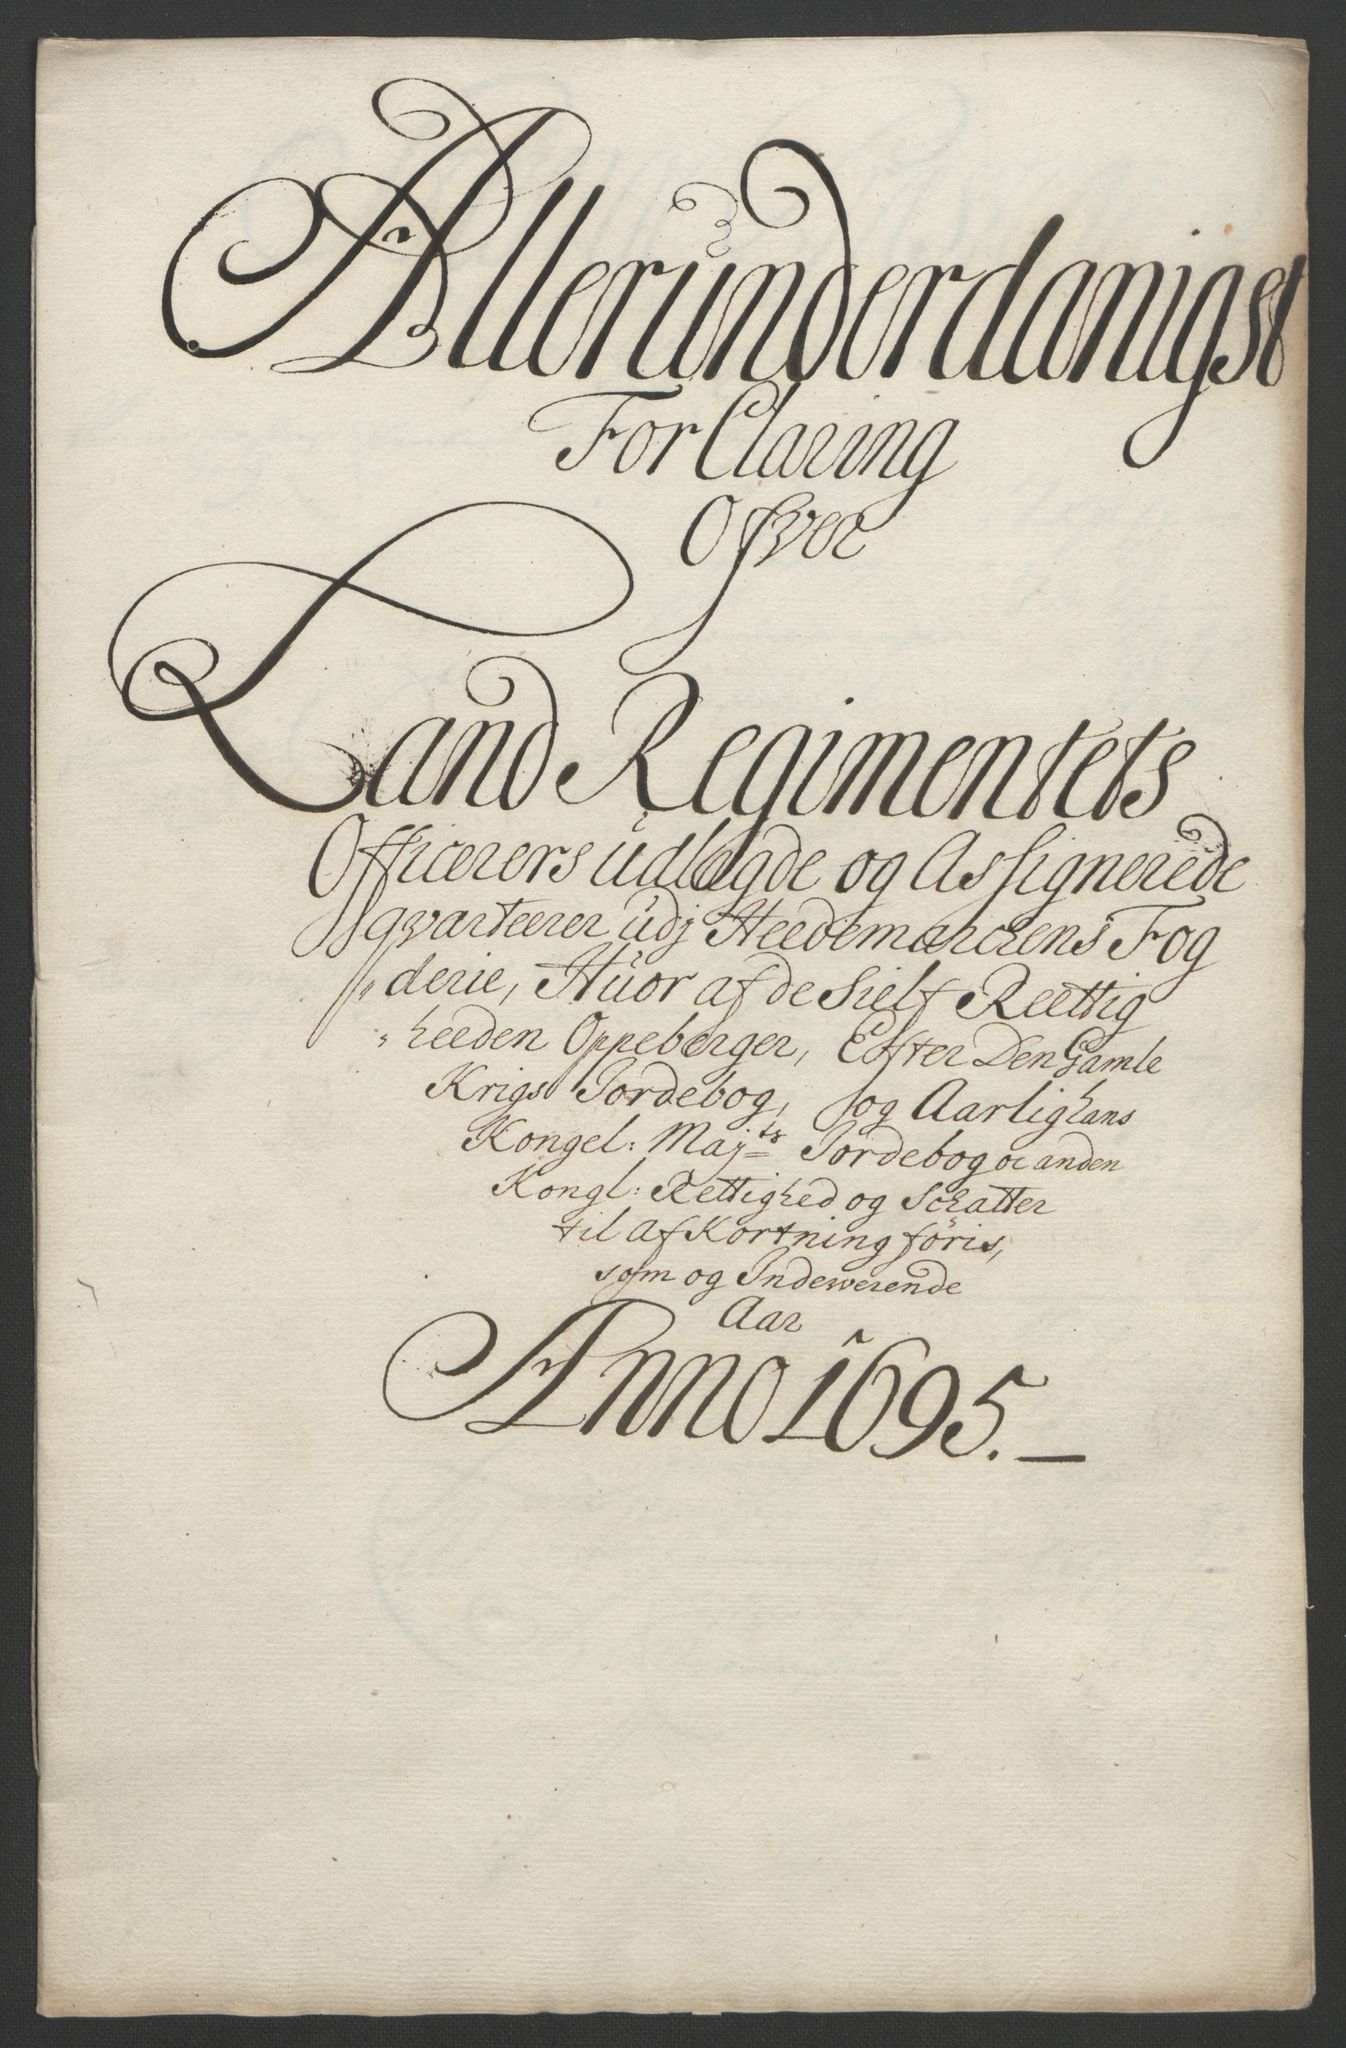 Allerunderdanigst
ForClaring
Ofver
Land Regimentets
Officerers udlagde og Assignerede
qvarteerer udj Heedemarckens Fog
"derie, Huor af de Sielf Reettig
"heeden Oppeberger, Efter Den Gamle
Krigs Jordebog, og Aarlig hans
Kongel: Maj:ts Jordebog oc anden
Kongl: Rettighed og Schatter
til AfKortning föris,
som og Indeværende
Aar
Anno 1695.—